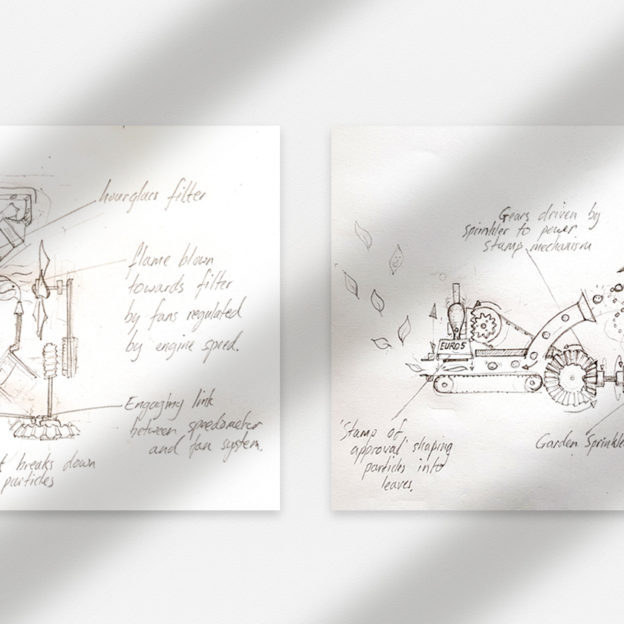 hourglass filter
flame blown
towards filter
by fans regulated
by engine speed.
Engaging link
between speedometer
and fan system.
t breaks down
particles
Gears driven by
sprinkler to power
stamp mechanism
EURO5
'Stamp of
approval' shaping
particles into
leaves.
Garden Sprinkle